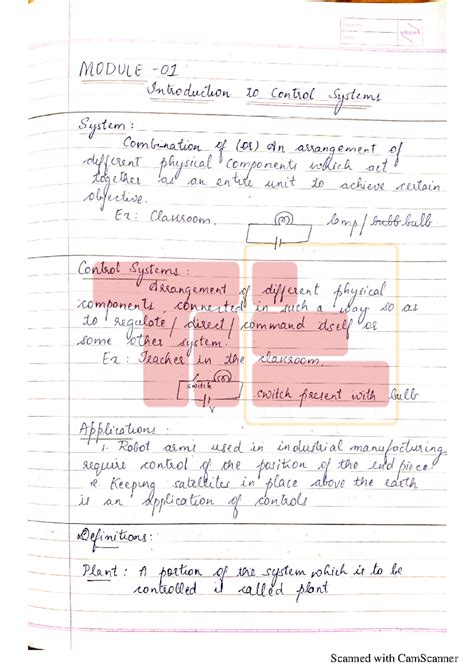 MODULE -01
Introduction to Control Systems
System:
Combination of (or) An arrangement of
different physical components which act
together as an entire unit to achieve certain
objective.
Ex: Classroom. lamp/ bulb
Control Systems:
Arrangement of different physical
components, connected in such a way so as
to regulate/ direct/ command itself or
some other system.
Ex: Teacher in the classroom.
switch
switch present with bulb
V
Applications:
1. Robot arms used in industrial manufacturing
require control of the position of the end piece
2. Keeping satellites in place above the earth
is an application of controls
Definitions:
Plant: A portion of the system which is to be
controlled is called plant
Scanned with CamScanner